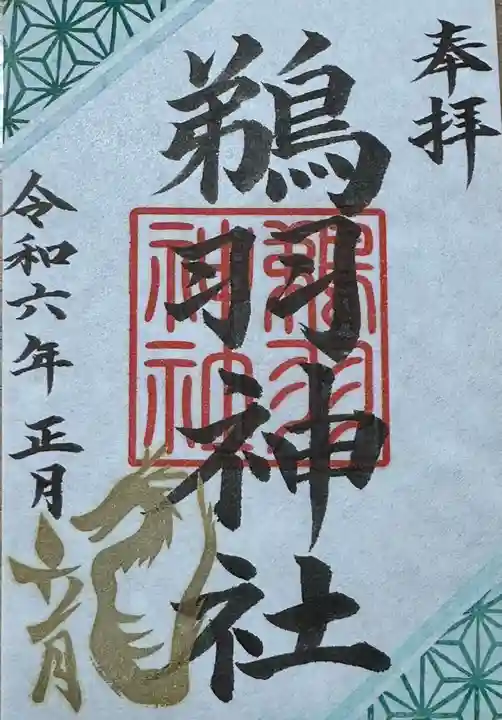 奉拝
鵜羽神社
鵜羽
神社
令和六年 正月
龍